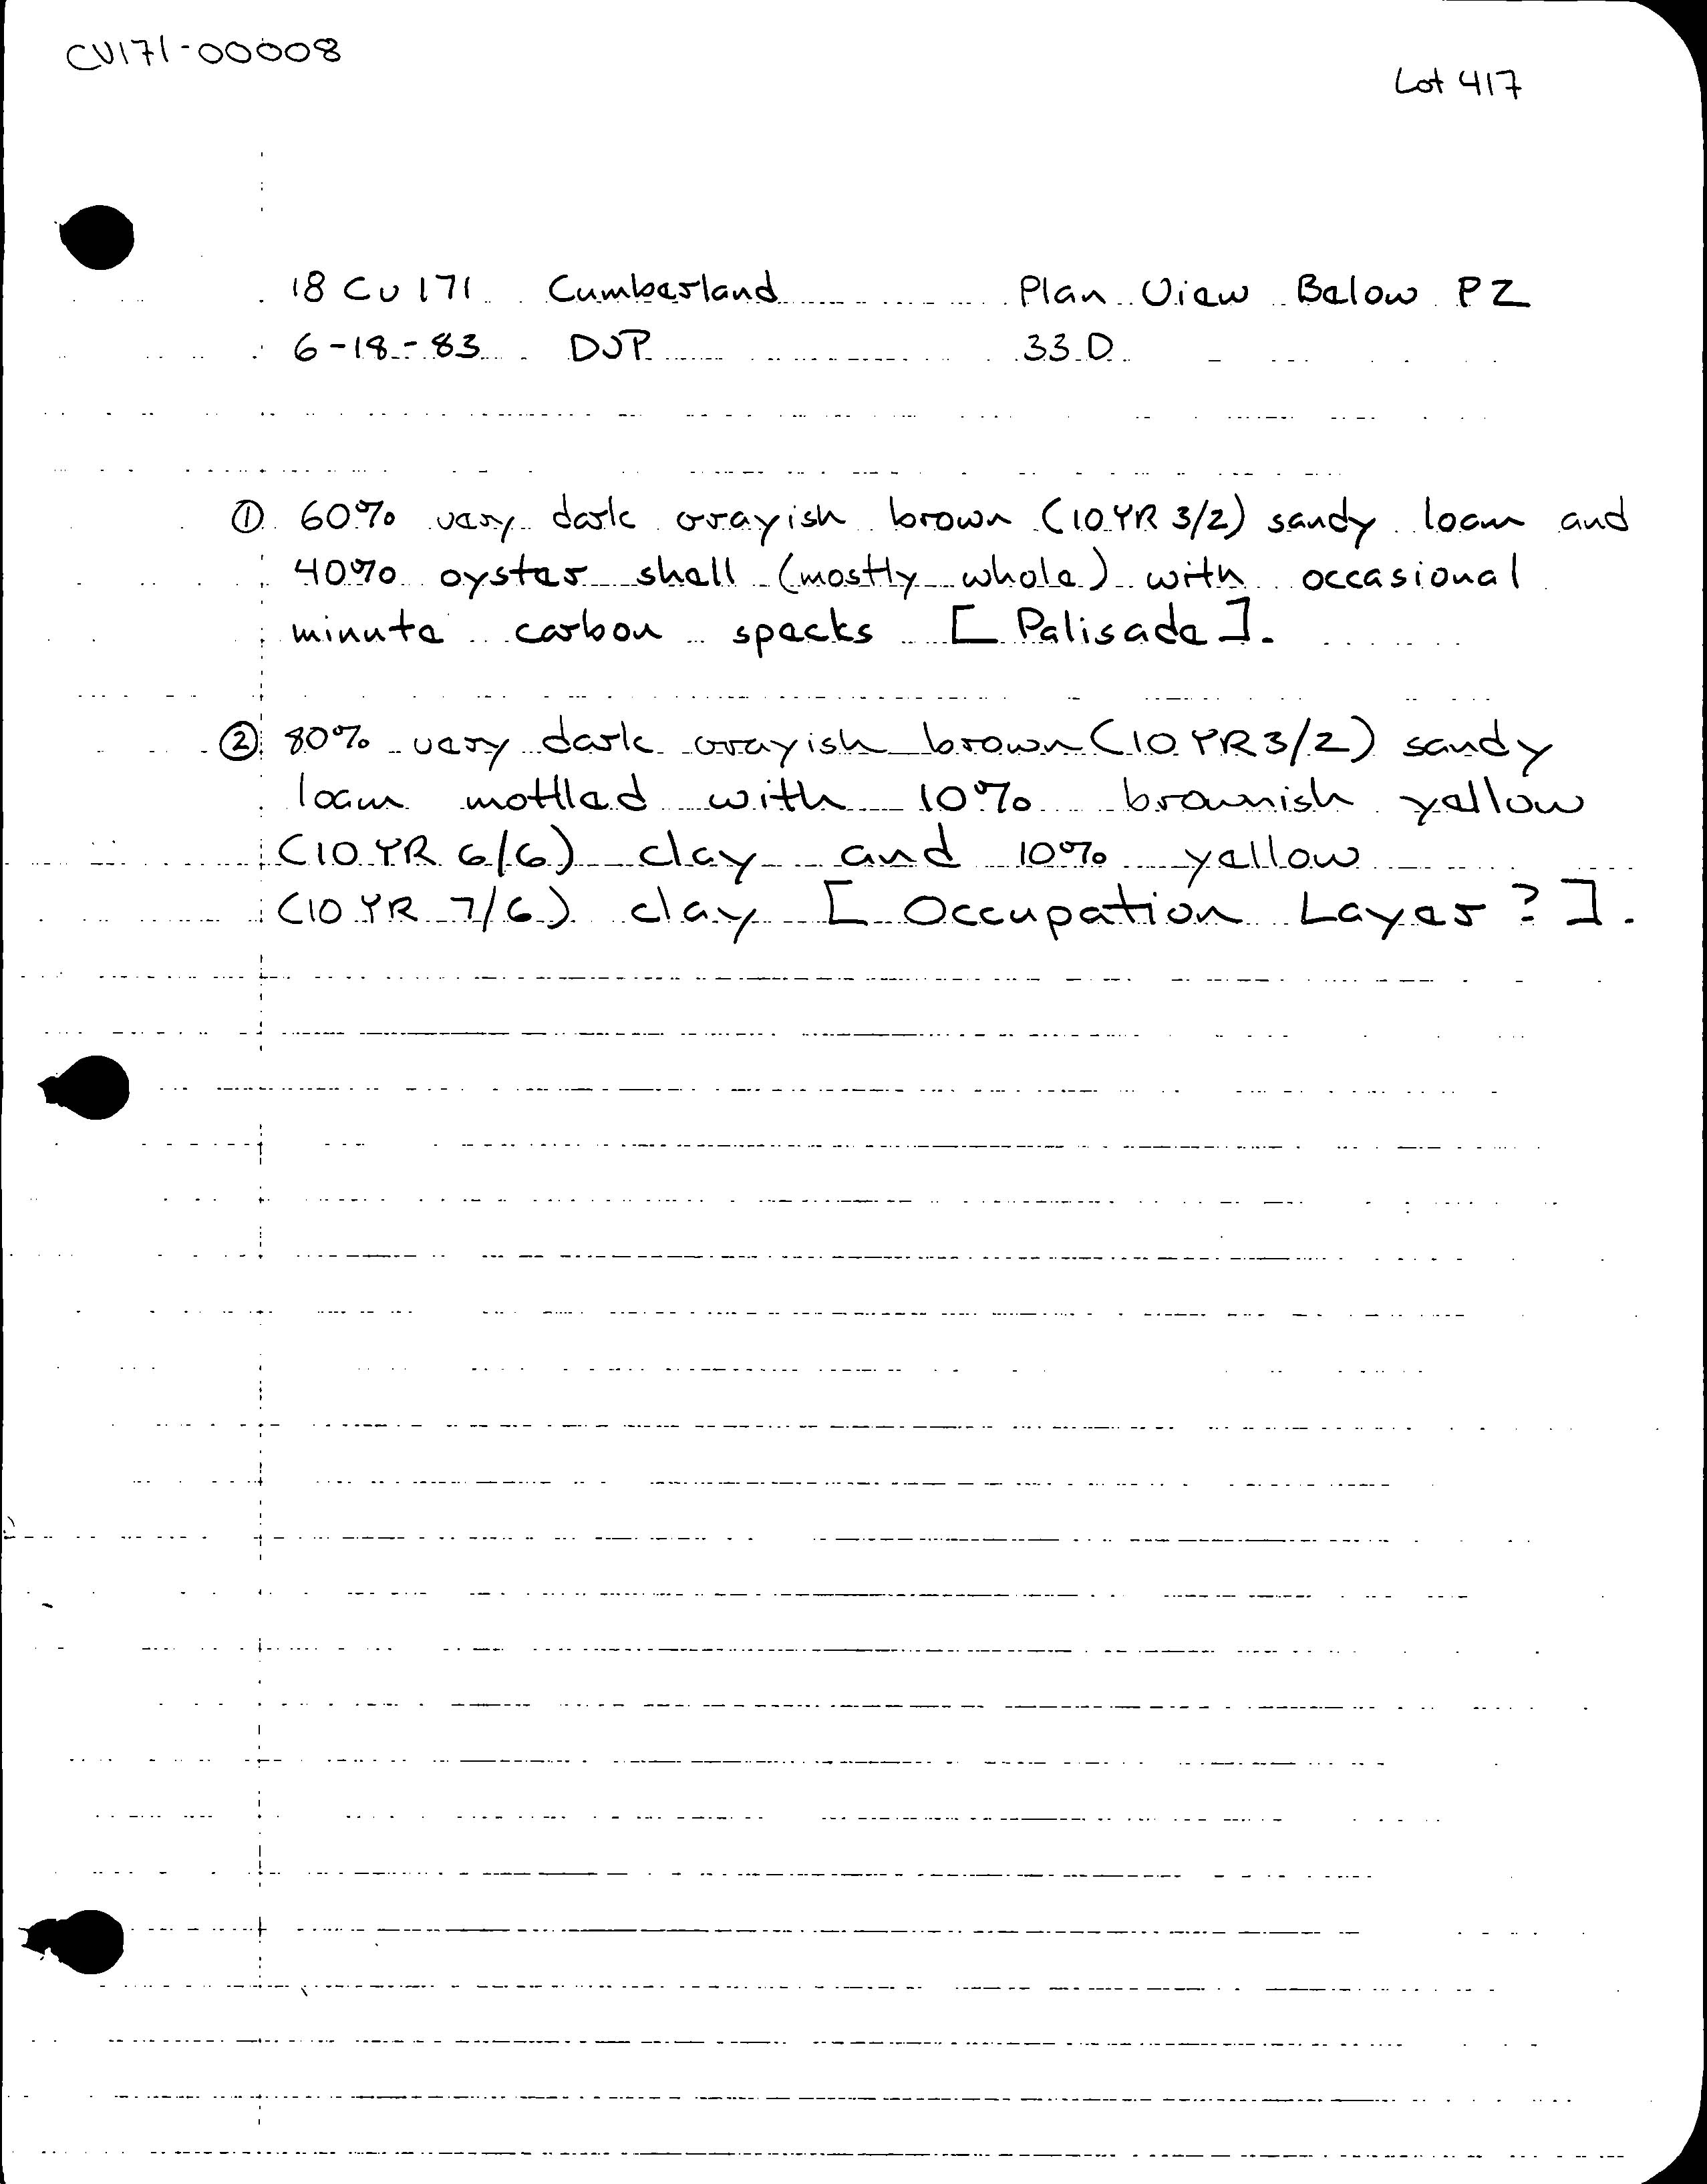 CU171-00008
Lot 417
18 CU 171 Cumberland Plan View Below PZ
6-18-83 DJP 33 D
① 60% very dark grayish brown (10 YR 3/2) sandy loam and
40% oyster shell (mostly whole) with occasional
minute carbon specks [Palisade].
② 80% very dark grayish brown (10 YR 3/2) sandy
loam mottled with 10% brownish yellow
(10 YR 6/6) clay and 10% yellow
(10 YR 7/6) clay [Occupation Layer?].